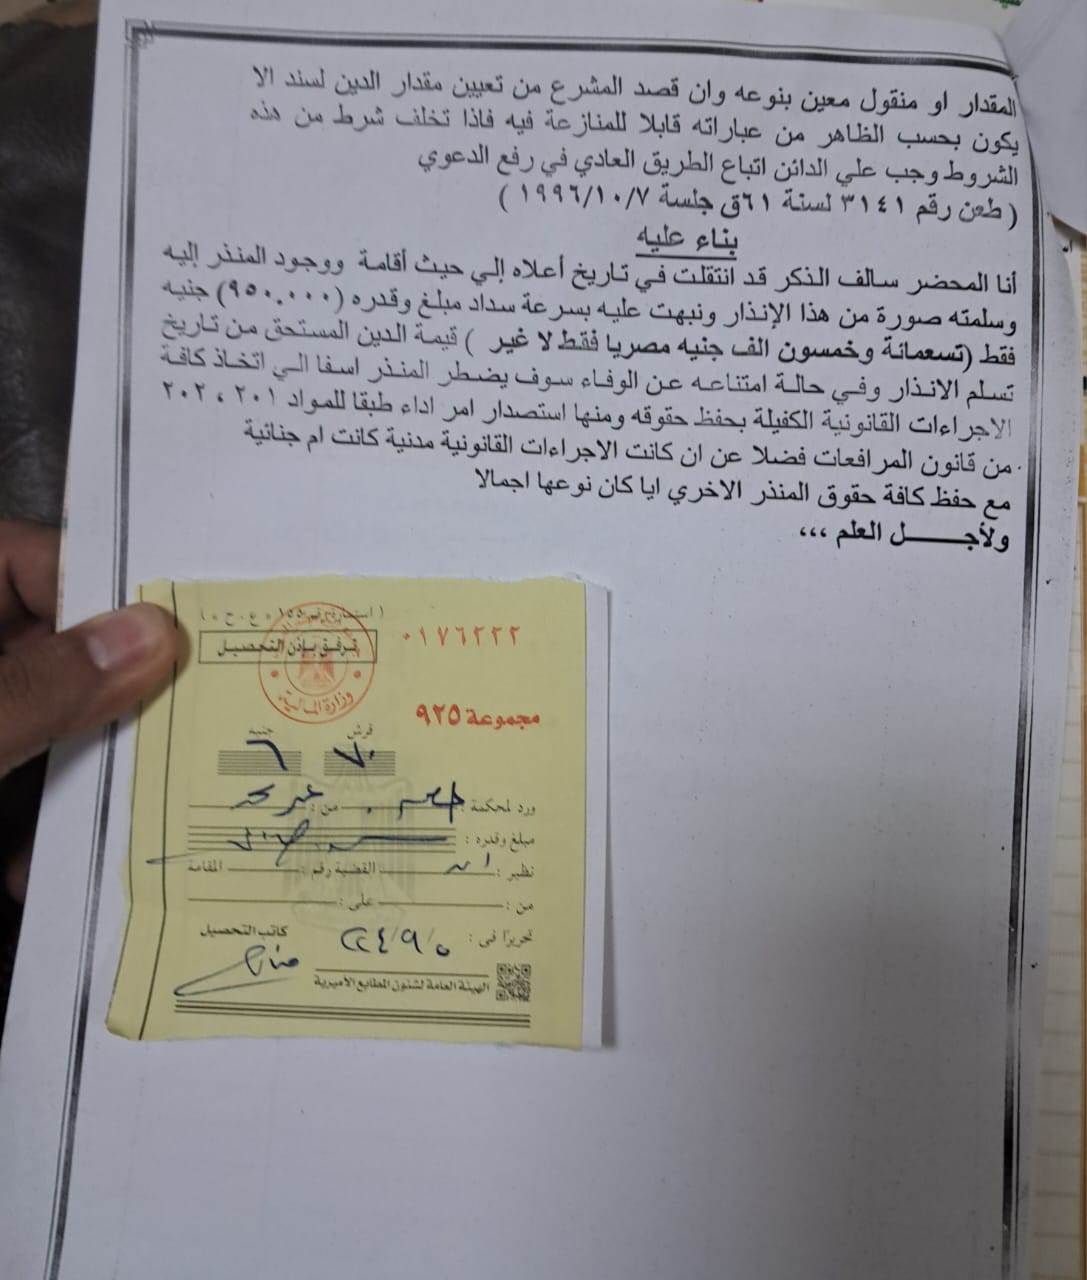 المقدار او منقول معين بنوعه وان قصد المشرع من تعيين مقدار الدين لسند الا
يكون بحسب الظاهر من عباراته قابلا للمنازعة فيه فاذا تخلف شرط من هذه
الشروط وجب علي الدائن اتباع الطريق العادي في رفع الدعوي
( طعن رقم ٣١٤١ لسنة ٦١ق جلسة ١٩٩٦/١٠/٧ )
بناء عليه
أنا المحضر سالف الذكر قد انتقلت في تاريخ أعلاه إلي حيث أقامة ووجود المنذر إليه
وسلمته صورة من هذا الإنذار ونبهت عليه بسرعة سداد مبلغ وقدره (٩٥٠.٠٠٠) جنيه
فقط (تسعمائة وخمسون الف جنيه مصريا فقط لا غير ) قيمة الدين المستحق من تاريخ
تسلم الانذار وفي حالة امتناعه عن الوفاء سوف يضطر المنذر اسفا الي اتخاذ كافة
الاجراءات القانونية الكفيلة بحفظ حقوقه ومنها استصدار امر اداء طبقا للمواد ٢٠١ ، ٢٠٢
من قانون المرافعات فضلا عن ان كانت الاجراءات القانونية مدنية كانت ام جنائية
مع حفظ كافة حقوق المنذر الاخري ايا كان نوعها اجمالا
ولأجــــل العلم ،،،
٠١٧٦٢٢٢
ترفق بإذن التحصيل
وزارة المالية
مجموعة ٩٢٥
قرش جنيه
٧٠ ٦
ورد لمحكمة : من :
مبلغ وقدره :
نظير : القضية رقم : المقامة
من : على :
تحريرًا فى :
كاتب التحصيل
الهيئة العامة لشئون المطابع الأميرية